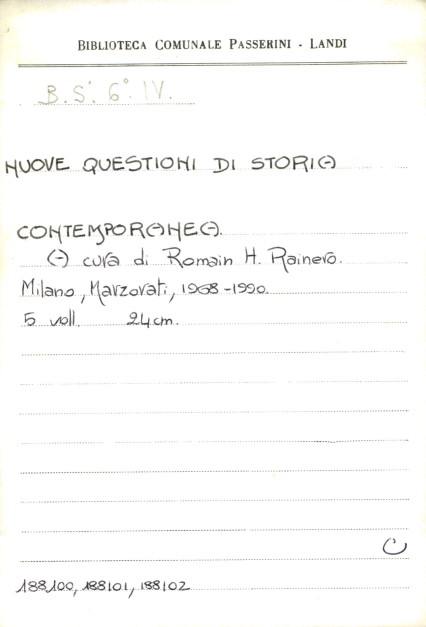 BIBLIOTECA COMUNALE PASSERINI - LANDI
B.S. 6° IV.
NUOVE QUESTIONI DI STORIA
CONTEMPORANEA.
A cura di Romain H. Rainero.
Milano, Marzorati, 1968-1990.
5 voll. 24 cm.
188100, 188101, 188102